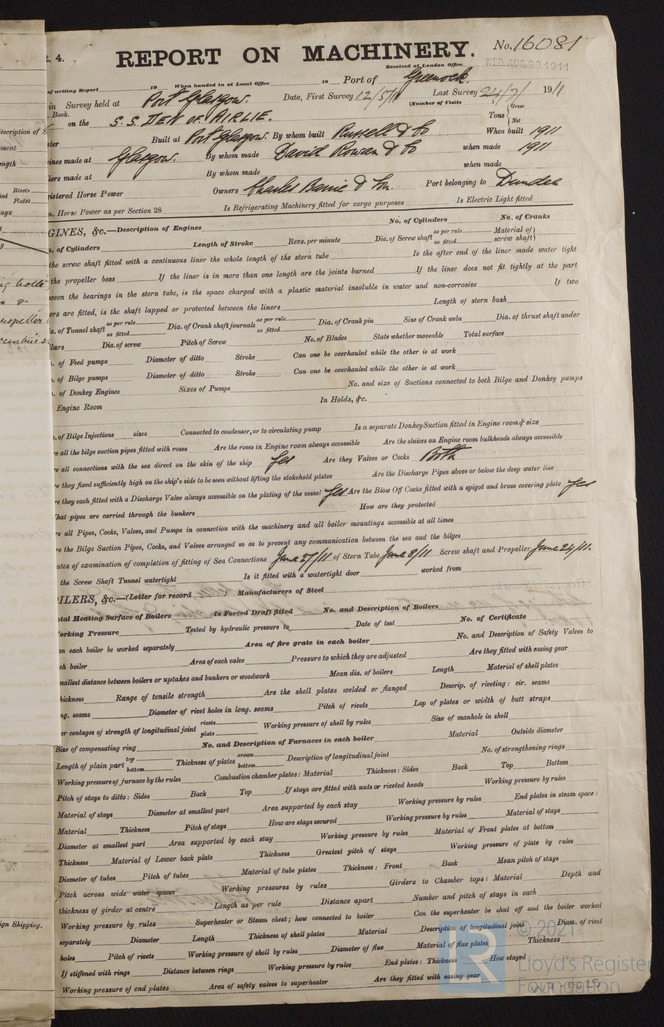 R. 4.
REPORT ON MACHINERY. No. 16081
Received at London Office WED. AUG. 30 1911
of writing Report 19 When handed in at Local Office 19 Port of Greenock.
in Survey held at Port Glasgow. Date, First Survey 12/5/11 Last Survey 24/7/ 1911
Book. (Number of Visits
on the S.S. DEN OF AIRLIE. Tons Gross Net
Built at Port Glasgow. By whom built Russell & Co When built 1911
ines made at Glasgow. By whom made David Rowan & Co when made 1911
lers made at By whom made when made
istered Horse Power Owners Charles Barrie & Son. Port belonging to Dundee
. Horse Power as per Section 28 Is Refrigerating Machinery fitted for cargo purposes Is Electric Light fitted
GINES, &c.—Description of Engines No. of Cylinders No. of Cranks
. of Cylinders Length of Stroke Revs. per minute Dia. of Screw shaft as per rule as fitted Material of screw shaft
the screw shaft fitted with a continuous liner the whole length of the stern tube Is the after end of the liner made water tight
the propeller boss If the liner is in more than one length are the joints burned If the liner does not fit tightly at the part
ween the bearings in the stern tube, is the space charged with a plastic material insoluble in water and non-corrosive If two
ers are fitted, is the shaft lapped or protected between the liners Length of stern bush
. of Tunnel shaft as per rule as fitted Dia. of Crank shaft journals as per rule as fitted Dia. of Crank pin Size of Crank webs Dia. of thrust shaft under
llars Dia. of screw Pitch of Screw No. of Blades State whether moveable Total surface
. of Feed pumps Diameter of ditto Stroke Can one be overhauled while the other is at work
. of Bilge pumps Diameter of ditto Stroke Can one be overhauled while the other is at work
. of Donkey Engines Sizes of Pumps No. and size of Suctions connected to both Bilge and Donkey pumps
Engine Room In Holds, &c.
. of Bilge Injections sizes Connected to condenser, or to circulating pump Is a separate Donkey Suction fitted in Engine room & size
re all the bilge suction pipes fitted with roses Are the roses in Engine room always accessible Are the sluices on Engine room bulkheads always accessible
re all connections with the sea direct on the skin of the ship Yes Are they Valves or Cocks Both
re they fixed sufficiently high on the ship's side to be seen without lifting the stokehold plates Are the Discharge Pipes above or below the deep water line
re they each fitted with a Discharge Valve always accessible on the plating of the vessel Yes Are the Blow Off Cocks fitted with a spigot and brass covering plate Yes
hat pipes are carried through the bunkers How are they protected
re all Pipes, Cocks, Valves, and Pumps in connection with the machinery and all boiler mountings accessible at all times
re the Bilge Suction Pipes, Cocks, and Valves arranged so as to prevent any communication between the sea and the bilges
ates of examination of completion of fitting of Sea Connections June 27/11 of Stern Tube June 8/11 Screw shaft and Propeller June 24/11.
the Screw Shaft Tunnel watertight Is it fitted with a watertight door worked from
OILERS, &c.—(Letter for record Manufacturers of Steel
otal Heating Surface of Boilers Is Forced Draft fitted No. and Description of Boilers
orking Pressure Tested by hydraulic pressure to Date of test No. of Certificate
an each boiler be worked separately Area of fire grate in each boiler No. and Description of Safety Valves to
ch boiler Area of each valve Pressure to which they are adjusted Are they fitted with easing gear
mallest distance between boilers or uptakes and bunkers or woodwork Mean dia. of boilers Length Material of shell plates
hickness Range of tensile strength Are the shell plates welded or flanged Descrip. of riveting: cir. seams
ng. seams Diameter of rivet holes in long. seams Pitch of rivets Lap of plates or width of butt straps
er centages of strength of longitudinal joint rivets plate Working pressure of shell by rules Size of manhole in shell
Size of compensating ring No. and Description of Furnaces in each boiler Material Outside diameter
Length of plain part top bottom Thickness of plates crown bottom Description of longitudinal joint No. of strengthening rings
Working pressure of furnace by the rules Combustion chamber plates: Material Thickness: Sides Back Top Bottom
Pitch of stays to ditto: Sides Back Top If stays are fitted with nuts or riveted heads Working pressure by rules
Material of stays Diameter at smallest part Area supported by each stay Working pressure by rules End plates in steam space:
Material Thickness Pitch of stays How are stays secured Working pressure by rules Material of stays
Diameter at smallest part Area supported by each stay Working pressure by rules Material of Front plates at bottom
Thickness Material of Lower back plate Thickness Greatest pitch of stays Working pressure of plate by rules
Diameter of tubes Pitch of tubes Material of tube plates Thickness: Front Back Mean pitch of stays
Pitch across wide water spaces Working pressures by rules Girders to Chamber tops: Material Depth and
thickness of girder at centre Length as per rule Distance apart Number and pitch of stays in each
Working pressure by rules Superheater or Steam chest; how connected to boiler Can the superheater be shut off and the boiler worked
separately Diameter Length Thickness of shell plates Material Description of longitudinal joint Diam. of rivet
holes Pitch of rivets Working pressure of shell by rules Diameter of flue Material of flue plates Thickness
If stiffened with rings Distance between rings Working pressure by rules End plates: Thickness How stayed
Working pressure of end plates Area of safety valves to superheater Are they fitted with easing gear
ign Shipping.
© 2021
Lloyd's Register
Foundation